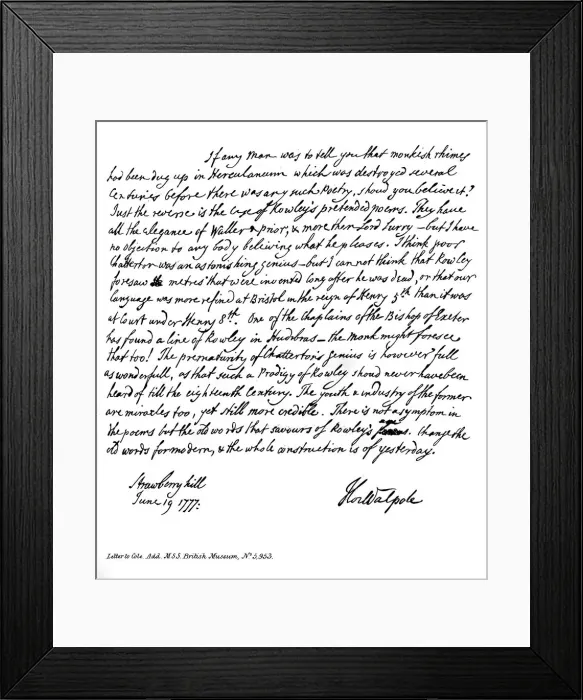 If any Man was to tell you that monkish rhimes
had been dug up in Herculaneum which was destroyed several
Centuries before there was any such Poetry, shoud you believe it?
Just the reverse is the Case of Rowley's pretended poems. They have
all the elegance of Waller & prior, & more than Lord Surry — but I have
no objection to any body believing what he pleases. I think poor
Chatterton was an astonishing genius — but I can not think that Rowley
foresaw metres that were invented long after he was dead, or that our
language was more refined at Bristol in the reign of Henry 5th than it was
at Court under Henry 8th. One of the Chaplains of the Bishop of Exeter
has found a line of Rowley in Hudibras — the Monk might foresee
that too! The prematurity of Chatterton's genius is however full
as wonderfull, as that such a Prodigy of Rowley shoud never have been
heard of till the eighteenth Century. The youth & industry of the former
are miracles too, yet still more credible. There is not a symptom in
the poems but the old words that savours of Rowley's age. Change the
old words for modern, & the whole construction is of yesterday.
Strawberry hill
June 19 1777:
Hor Walpole
Letter to Cole. Add. MSS. British Museum, No. 5,953.